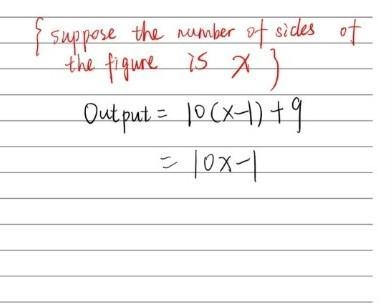 {suppose the number of sides of
the figure is x}
Output = 10(x-1)+9
= 10x-1